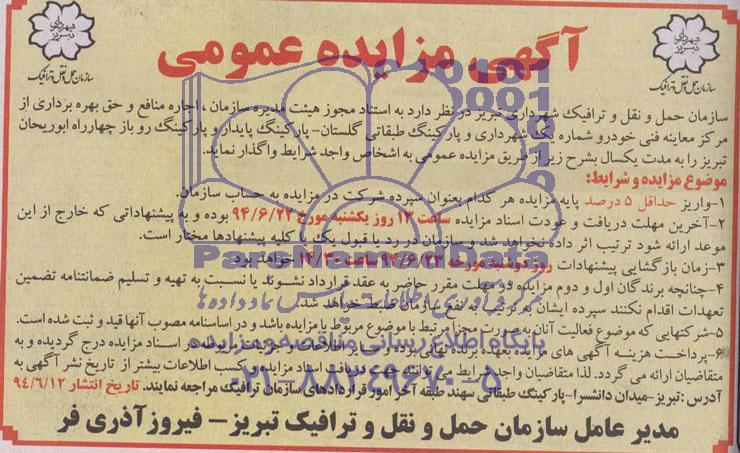 آگهی مزایده عمومی
شهرداری تبریز
سازمان حمل و نقل و ترافیک
شهرداری تبریز
سازمان حمل و نقل و ترافیک
سازمان حمل و نقل و ترافیک شهرداری تبریز در نظر دارد به استناد مجوز هیئت مدیره سازمان، اجاره منافع و حق بهره برداری از
مرکز معاینه فنی خودرو شماره یک شهرداری و پارکینگ طبقاتی گلستان- پارکینگ پایدار و پارکینگ رو باز چهارراه ابوریحان
تبریز را به مدت یکسال بشرح زیر از طریق مزایده عمومی به اشخاص واجد شرایط واگذار نماید.
موضوع مزایده و شرایط:
۱-واریز حداقل ۵ درصد پایه مزایده هر کدام بعنوان سپرده شرکت در مزایده به حساب سازمان.
۲-آخرین مهلت دریافت و عودت اسناد مزایده ساعت ۱۳ روز یکشنبه مورخ ۹۴/۶/۲۲ بوده و به پیشنهاداتی که خارج از این
موعد ارائه شود ترتیب اثر داده نخواهد شد و سازمان در رد یا قبول یک یا کلیه پیشنهادها مختار است.
۳-زمان بازگشایی پیشنهادات روز دوشنبه مورخه ۹۴/۶/۲۳ ساعت ۱۴/۳۰ خواهد بود.
۴-چنانچه برندگان اول و دوم مزایده در مهلت مقرر حاضر به عقد قرارداد نشوند یا نسبت به تهیه و تسلیم ضمانتنامه تضمین
تعهدات اقدام نکنند سپرده ایشان به ترتیب به نفع سازمان ضبط خواهد شد.
۵-شرکتهایی که موضوع فعالیت آنان به صورت مجزا مرتبط با موضوع مربوط با مزایده باشد و در اساسنامه مصوب آنها قید و ثبت شده است.
۶-پرداخت هزینه آگهی های مزایده بعهده برنده نهائی بوده و سایر اطلاعات و در اسناد مزایده درج گردیده و به
متقاضیان ارائه می گردد. لذا متقاضیان واجد شرایط می توانند جهت دریافت اسناد مزایده و کسب اطلاعات بیشتر از تاریخ نشر آگهی به
آدرس: تبریز-میدان دانشسرا-پارکینگ طبقاتی سهند طبقه آخر امور قراردادهای سازمان ترافیک مراجعه نمایند. تاریخ انتشار ۹۴/۶/۱۲
مدیر عامل سازمان حمل و نقل و ترافیک تبریز- فیروز آذری فر
ParsNamadData
پایگاه اطلاع رسانی مناقصه و مزایده
۰۲۱-۸۸۳۴۹۶۷۰-۵